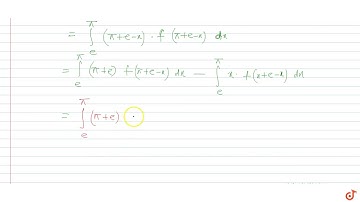 = ∫_e^π (π+e-x) · f (π+e-x) dx
= ∫_e^π (π+e) f(π+e-x) dx — ∫_e^π x · f(π+e-x) dx
= ∫_e^π (π+e) ·